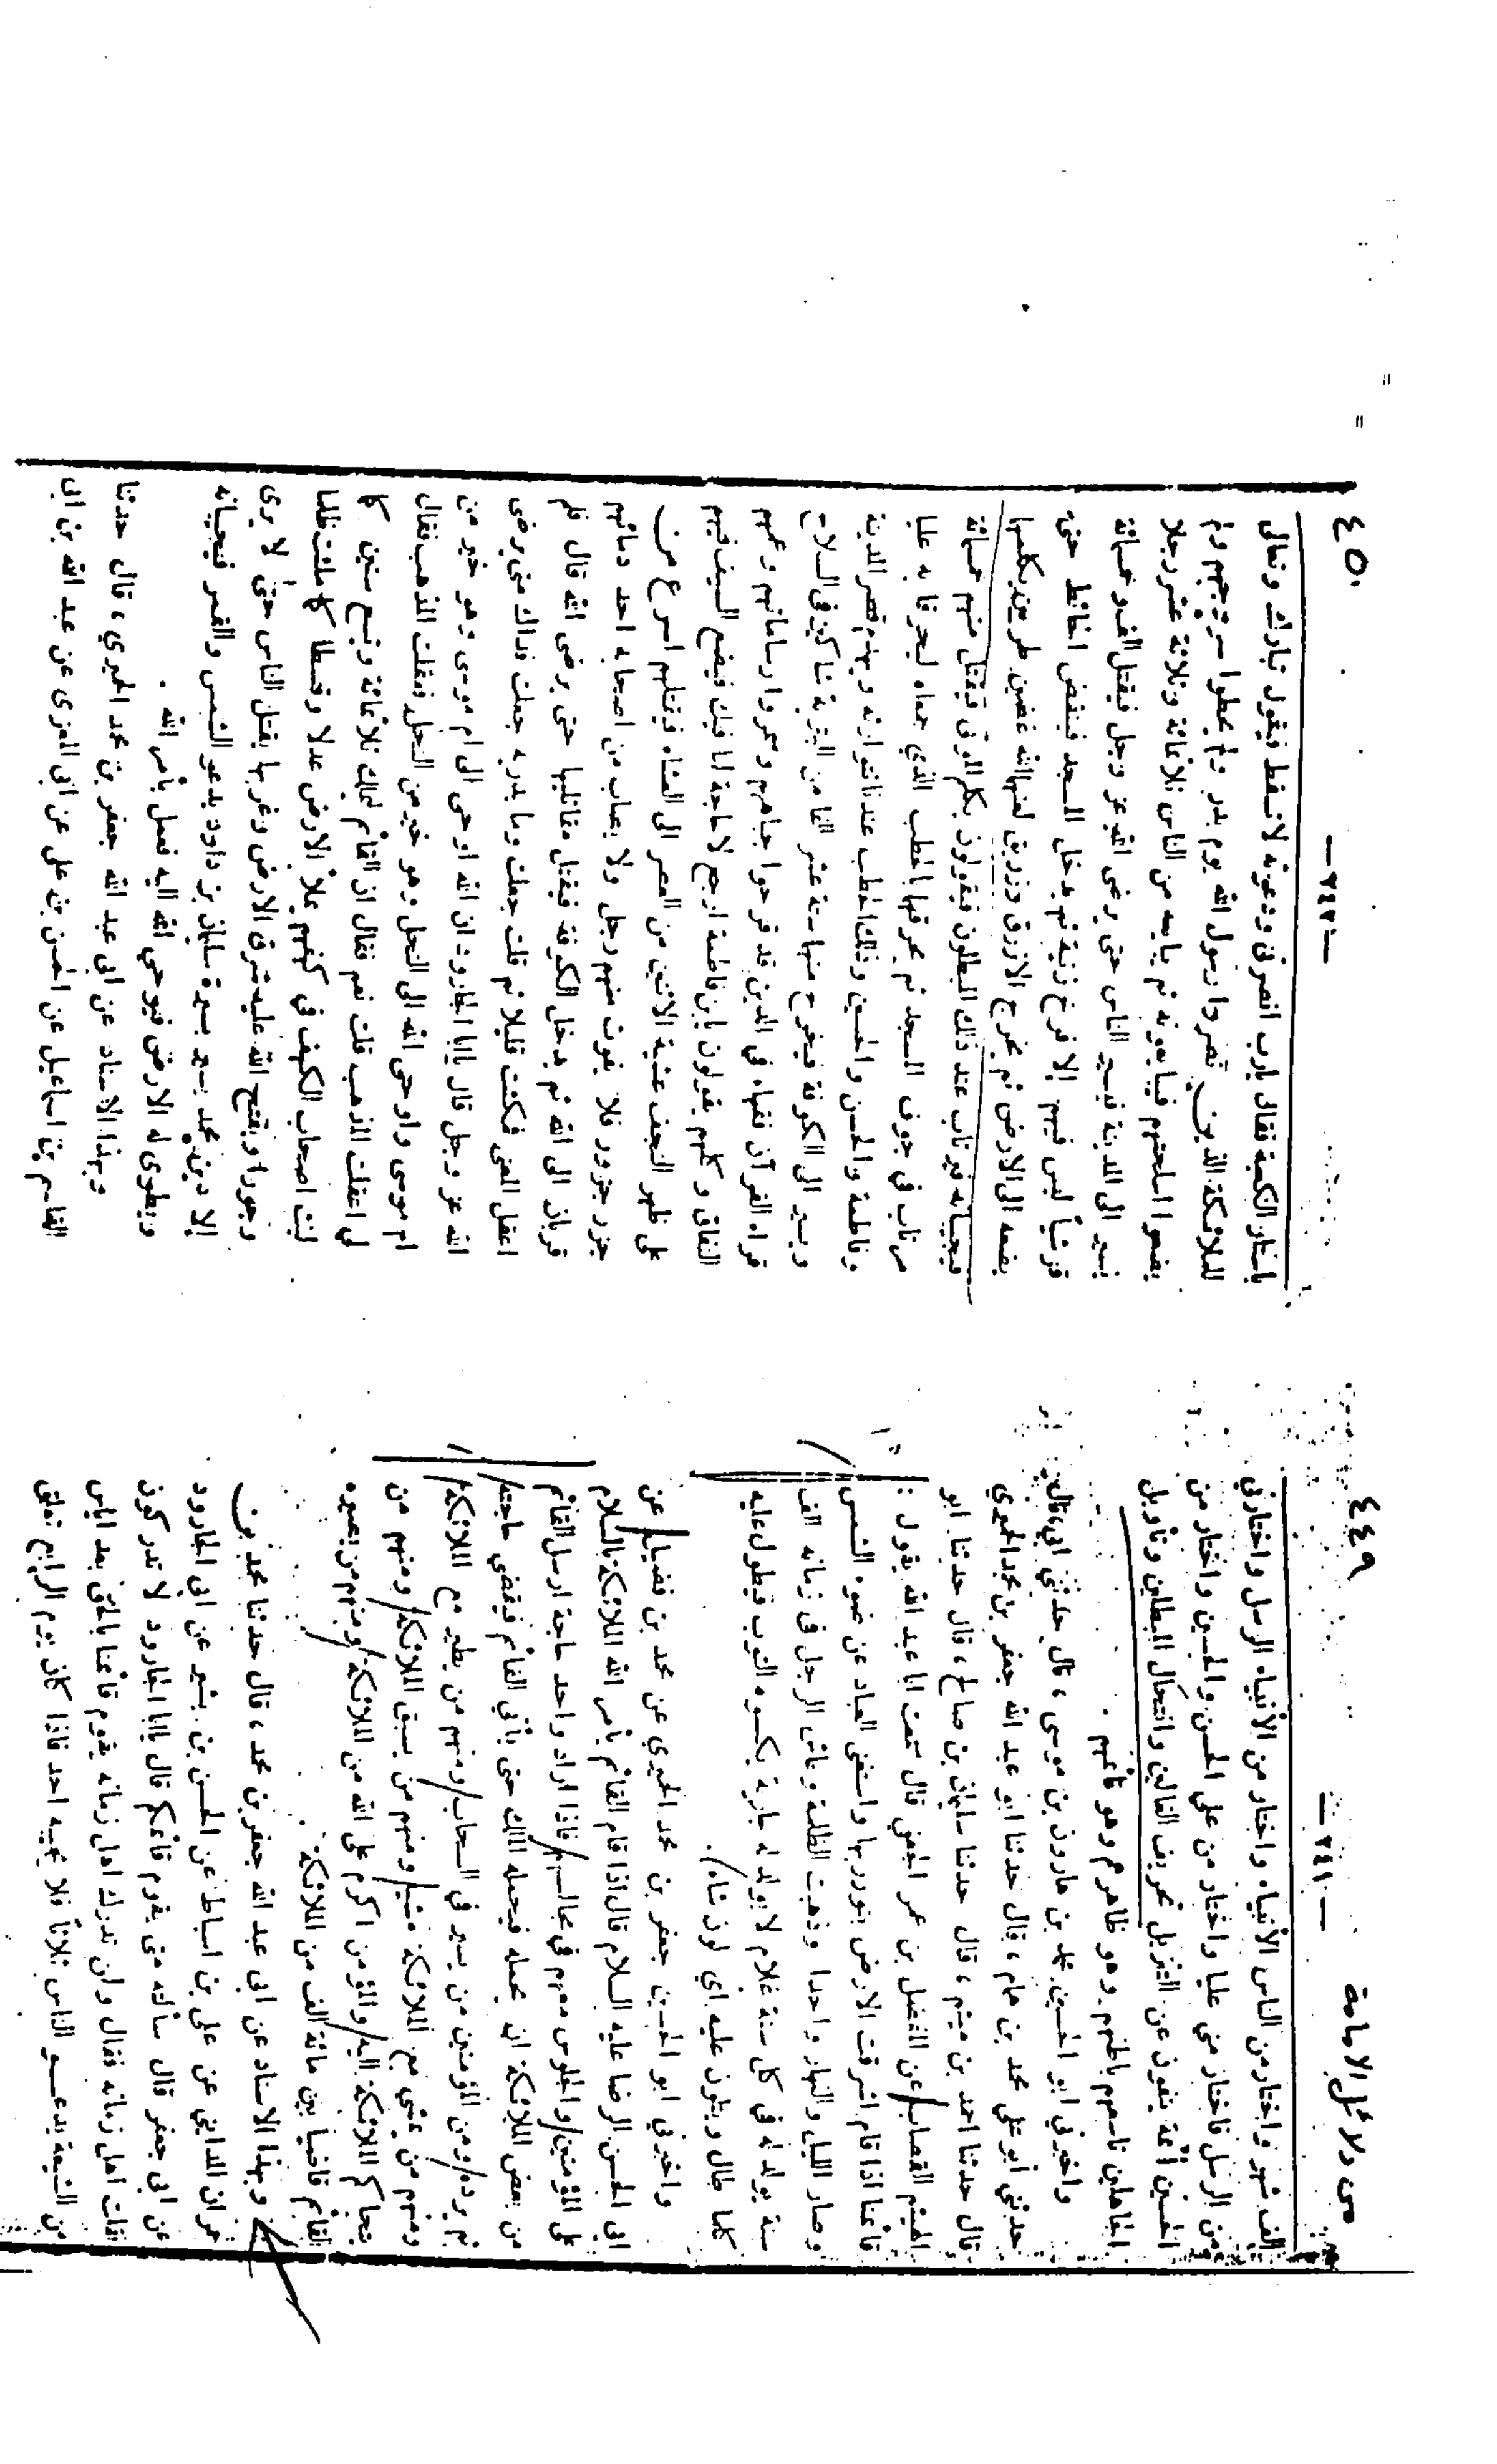 ٤٤٩
من دلائل الامامة
— ٢٤١ —
الف شهر واختار من الناس الأنبياء واختار من الأنبياء الرسل واختارني
من الرسل فاختار مني عليا واختار من علي الحسن والحسين واختار من
الحسين أئمة ينفون عن التنزيل تحريف الغالين وانتحال المبطلين وتأويل
الجاهلين تاسعهم باطنهم وهو ظاهرهم وهو قائمهم .
واخبرني ابو الحسين محمد بن هارون بن موسى ، قال حدثني ابي ، قال
حدثني أبو علي محمد بن همام ، قال حدثنا ابو عبد الله جعفر بن محمد الحميري
قال حدثنا احمد بن ميثم ، قال حدثنا سليمان بن صالح ، قال حدثنا ابو
الهيثم القصاب عن المفضل بن عمر الجعفي قال سمعت ابا عبد الله يقول :
قائمنا اذا قام اشرقت الارض بنور ربها واستغنى العباد عن ضوء الشمس
وصار الليل والنهار واحدا وذهبت الظلمة وعاش الرجل في زمانه الف
سنة يولد له في كل سنة غلام لا يولد له جارية يكسوه الثوب فيطول عليه
كلما طال ويتلون عليه اي لون شاء .
واخبرني ابو الحسين جعفر بن محمد الحميري عن محمد بن فضيل عن
ابي الحسن الرضا عليه السلام قال اذا قام القائم يأمر الله الملائكة بالسلام
على المؤمنين والجلوس معهم في مجالسهم فاذا اراد واحد حاجة ارسل القائم
من بعض الملائكة ان يحمله فيحمله الملك حتى يأتي القائم فيقضي حاجته
ثم يرده ومن المؤمنين من يسير في السحاب ومنهم من يطير مع الملائكة
ومنهم من يمشي مع الملائكة مشيا ومنهم من يسبق الملائكة ومنهم من
يتحاكم الملائكة اليه والمؤمن اكرم على الله من الملائكة ومنهم من يصيره
القائم قاضيا بين مائة الف من الملائكة .
وبهذا الاسناد عن ابي عبد الله جعفر بن محمد ، قال حدثنا محمد بن
حمران المدايني عن علي بن اسباط عن الحسن بن بشير عن ابي الجارود
عن ابي جعفر قال سألته متى يقوم قائمكم قال يا ابا الجارود لا تدركون
فقلت اهل زمانه فقال ولن تدرك اهل زمانه يقوم قائمنا بالحق بعد اياس
من الشيعة يدعو الناس ثلاثا فلا يجيبه احد فاذا كان يوم الرابع تعلق
٤٥٠
— ٢٤٢ —
باستار الكعبة فقال يارب انصرني ودعوته لا تسقط فيقول تبارك وتعالى
للملائكة الذين نصروا رسول الله يوم بدر ولم يحطوا سروجهم ولم
يضعوا اسلحتهم فيبايعونه ثم يبايعه من الناس ثلاثمائة وثلاثة عشر رجلا
يسير الى المدينة فيسير الناس حتى يرضى الله عز وجل فيقتل الف وخمسمائة
قرشياً ليس فيهم إلا فرخ زنية ثم يدخل المسجد فينقض الحائط حتى
يضعه الى الارض ثم يخرج الازرق وزريق لعنهما الله غضين طريين يكلمهما
فيجيبانه فيرتاب عند ذلك المبطلون فيقولون يكلم الموتى فيقتل منهم خمسمائة
مرتاب في جوف المسجد ثم يحرقهما بالحطب الذي جمعاه ليحرقا به عليا
وفاطمة والحسن والحسين وذلك الحطب عندنا نتوارثه ويهدم قصر المدينة
ويسير الى الكوفة فيخرج منها ستة عشر الفا من البترية شاكين في السلاح
قراء القرآن فقهاء في الدين قد قرحوا جباههم وسمروا ساماتهم وعمهم
النفاق وكلهم يقولون يابن فاطمة ارجع لا حاجة لنا فيك فيضع السيف فيهم
على ظهر النجف عشية الاثنين من العصر الى العشاء فيقتلهم اسرع من
جزر جزور فلا يفوت منهم رجل ولا يصاب من اصحابه احد دمائهم
قربان الى الله ثم يدخل الكوفة فيقتل مقاتليها حتى يرضى الله قال فلم
اعقل المعنى فمكثت قليلا ثم قلت جعلت وما يدريه جعلت فداك متى يرضى
الله عز وجل قال يا ابا الجارود ان الله اوحى الى ام موسى وهو خير من
ام موسى واوحى الله الى النحل وهو خير من النحل فعقلت المذهب فقال
لي اعقلت المذهب قلت نعم فقال ان القائم ليملك ثلاثمائة وتسع سنين كما
لبث اصحاب الكهف في كهفهم يملأ الارض عدلا وقسطا كما ملئت ظلما
وجورا ويفتح الله عليه شرق الارض وغربها يقتل الناس حتى لا يرى
إلا دين محمد يسير بسيرة سليمان بن داود يدعو الشمس والقمر فيجيبانه
وتطوى له الارض فيوحي الله اليه فيعمل بأمر الله .
وبهذا الاسناد عن ابي عبد الله جعفر بن محمد الحميري ، قال حدثنا
القاسم بن اسماعيل عن الحسن بن علي عن ابي المغرى عن عبد الله بن ابي